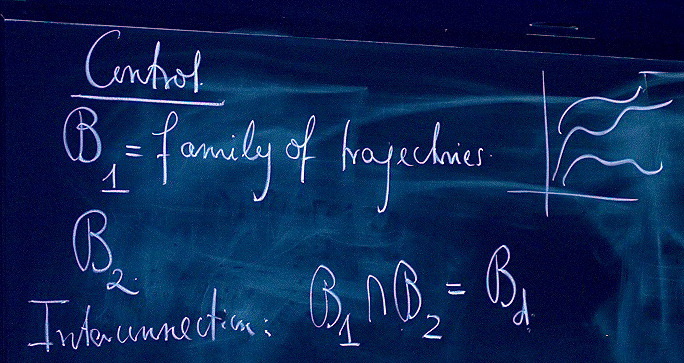 Control.
B₁ = family of trajectories.
B₂.
Interconnection: B₁ ∩ B₂ = B_d